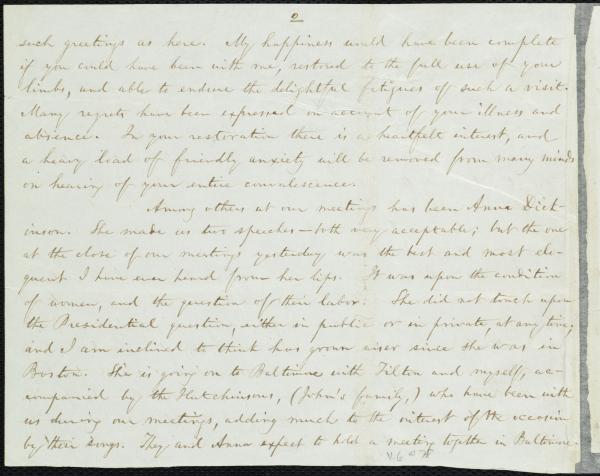 2
such greetings as here. My happiness would have been complete
if you could have been with me, restored to the full use of your
limbs, and able to endure the delightful fatigues of such a visit.
Many regrets have been expressed on account of your illness and
absence. In your restoration there is a heartfelt interest, and
a heavy load of friendly anxiety will be removed from many minds
on hearing of your entire convalescence.
Among others at our meetings has been Anna Dick-
inson. She made us two speeches—both very acceptable; but the one
at the close of our meetings yesterday was the best and most elo-
quent I have ever heard from her lips. It was upon the condition
of women, and the question of their labor. She did not touch upon
the Presidential question, either in public or in private, at any time,
and I am inclined to think has grown wiser since she was in
Boston. She is going on to Baltimore with Tilton and myself, ac-
companied by the Hutchinsons, (John's family,) who have been with
us during our meetings, adding much to the interest of the occasion
by their songs. They and Anna expect to hold a meeting together in Baltimore.